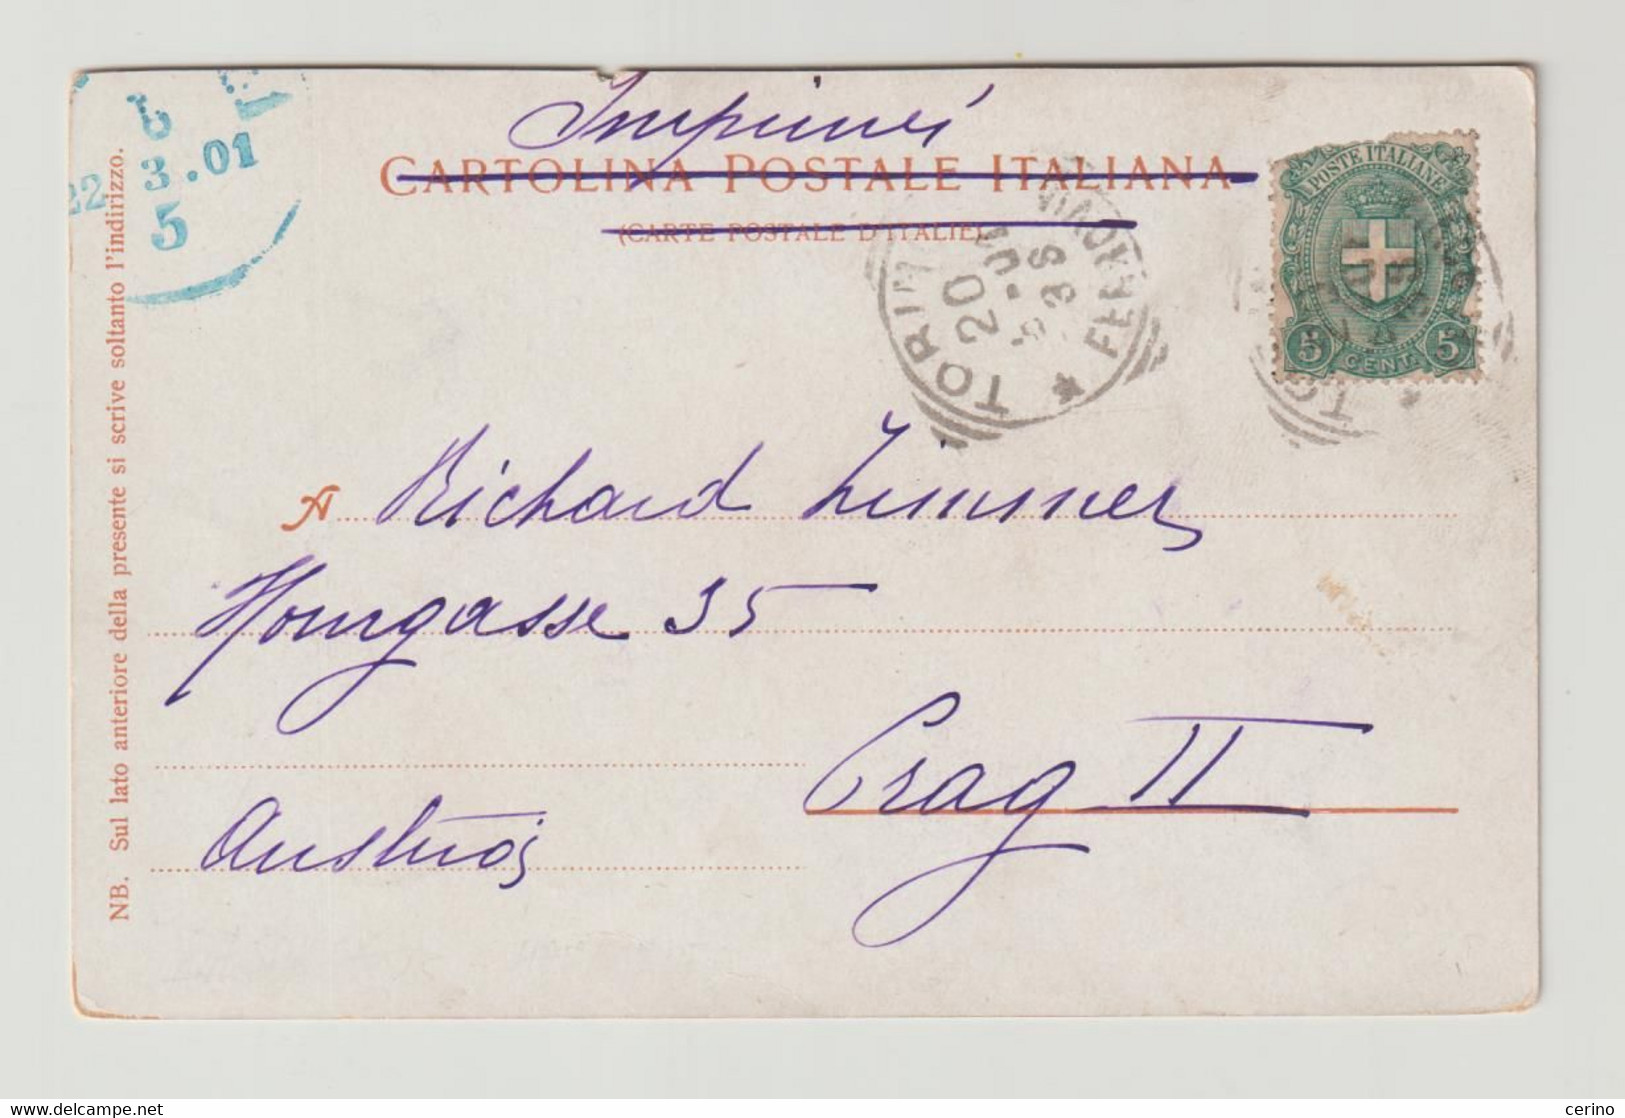 Imprimés
CARTOLINA POSTALE ITALIANA
(CARTE POSTALE D'ITALIE)
22 3.01
5
TORINO
20
FERROVIA
POSTE ITALIANE
5 CENT. 5
A Richard Zimmer
35
Prag II
Austria
NB. Sul lato anteriore della presente si scrive soltanto l'indirizzo.
cerino